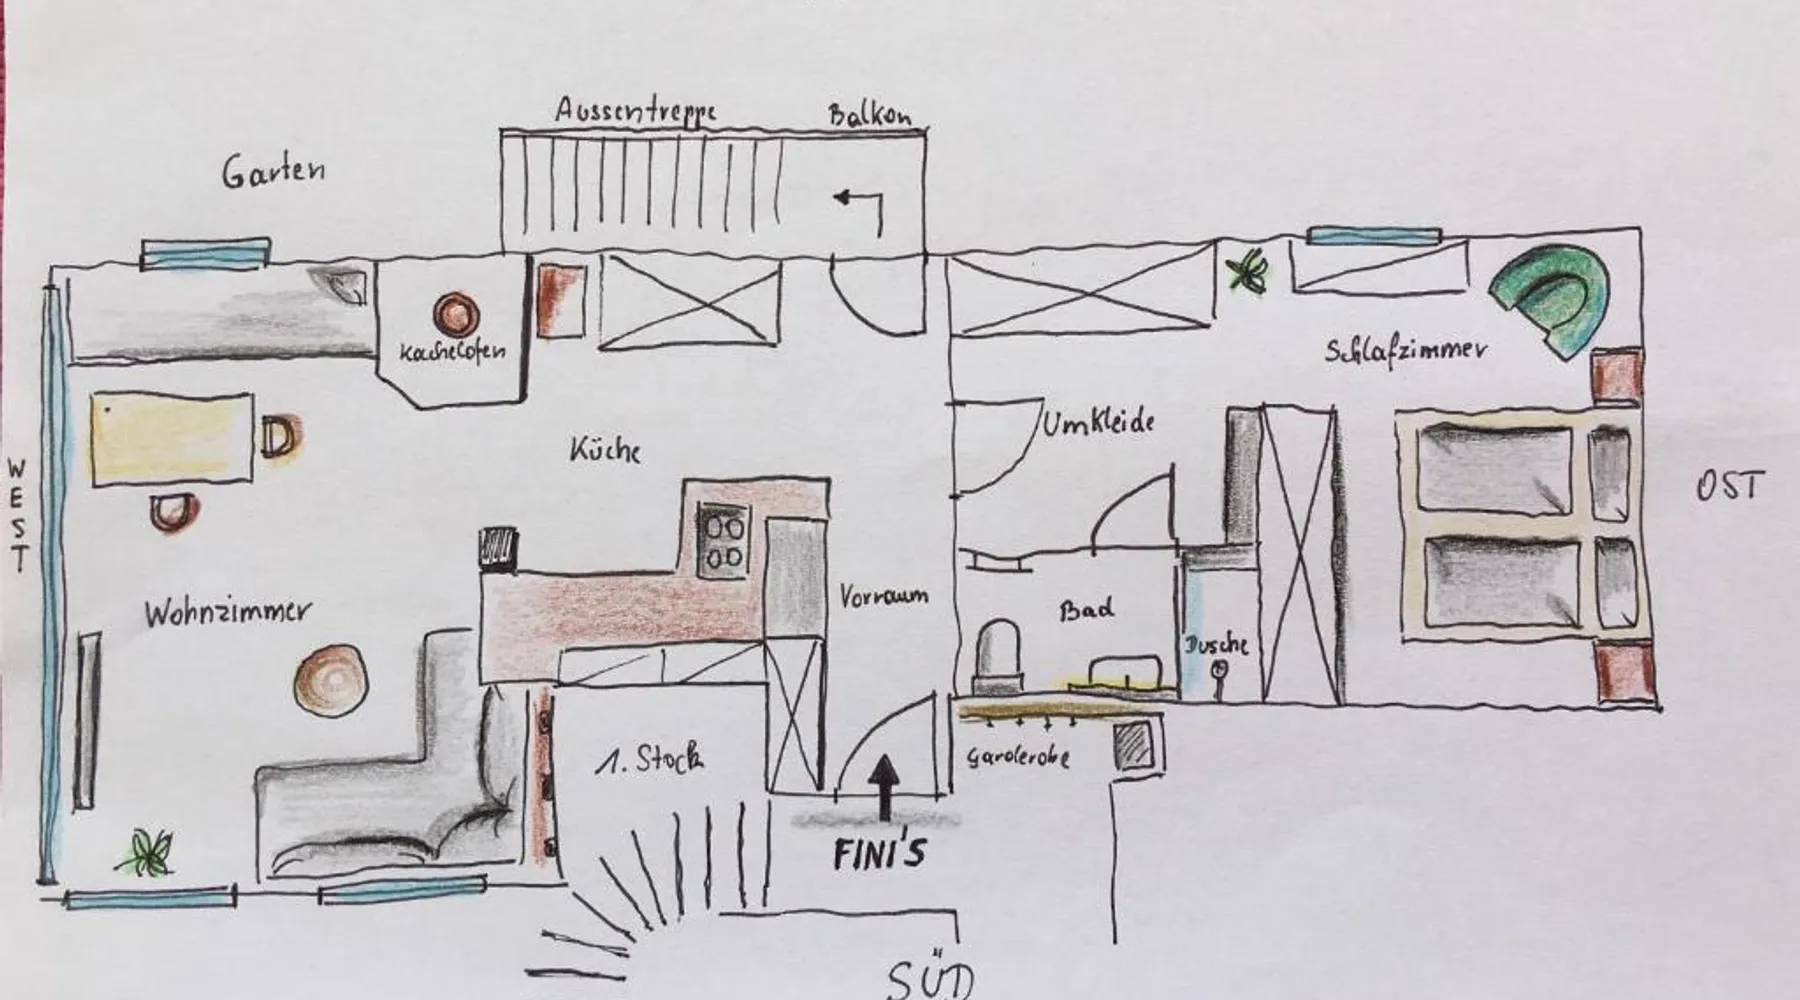 Aussentreppe
Balkon
Garten
Kachelofen
Schlafzimmer
Umkleide
Küche
WEST
OST
Vorraum
Wohnzimmer
Bad
Dusche
1. Stock
Garderobe
FINI'S
SÜD